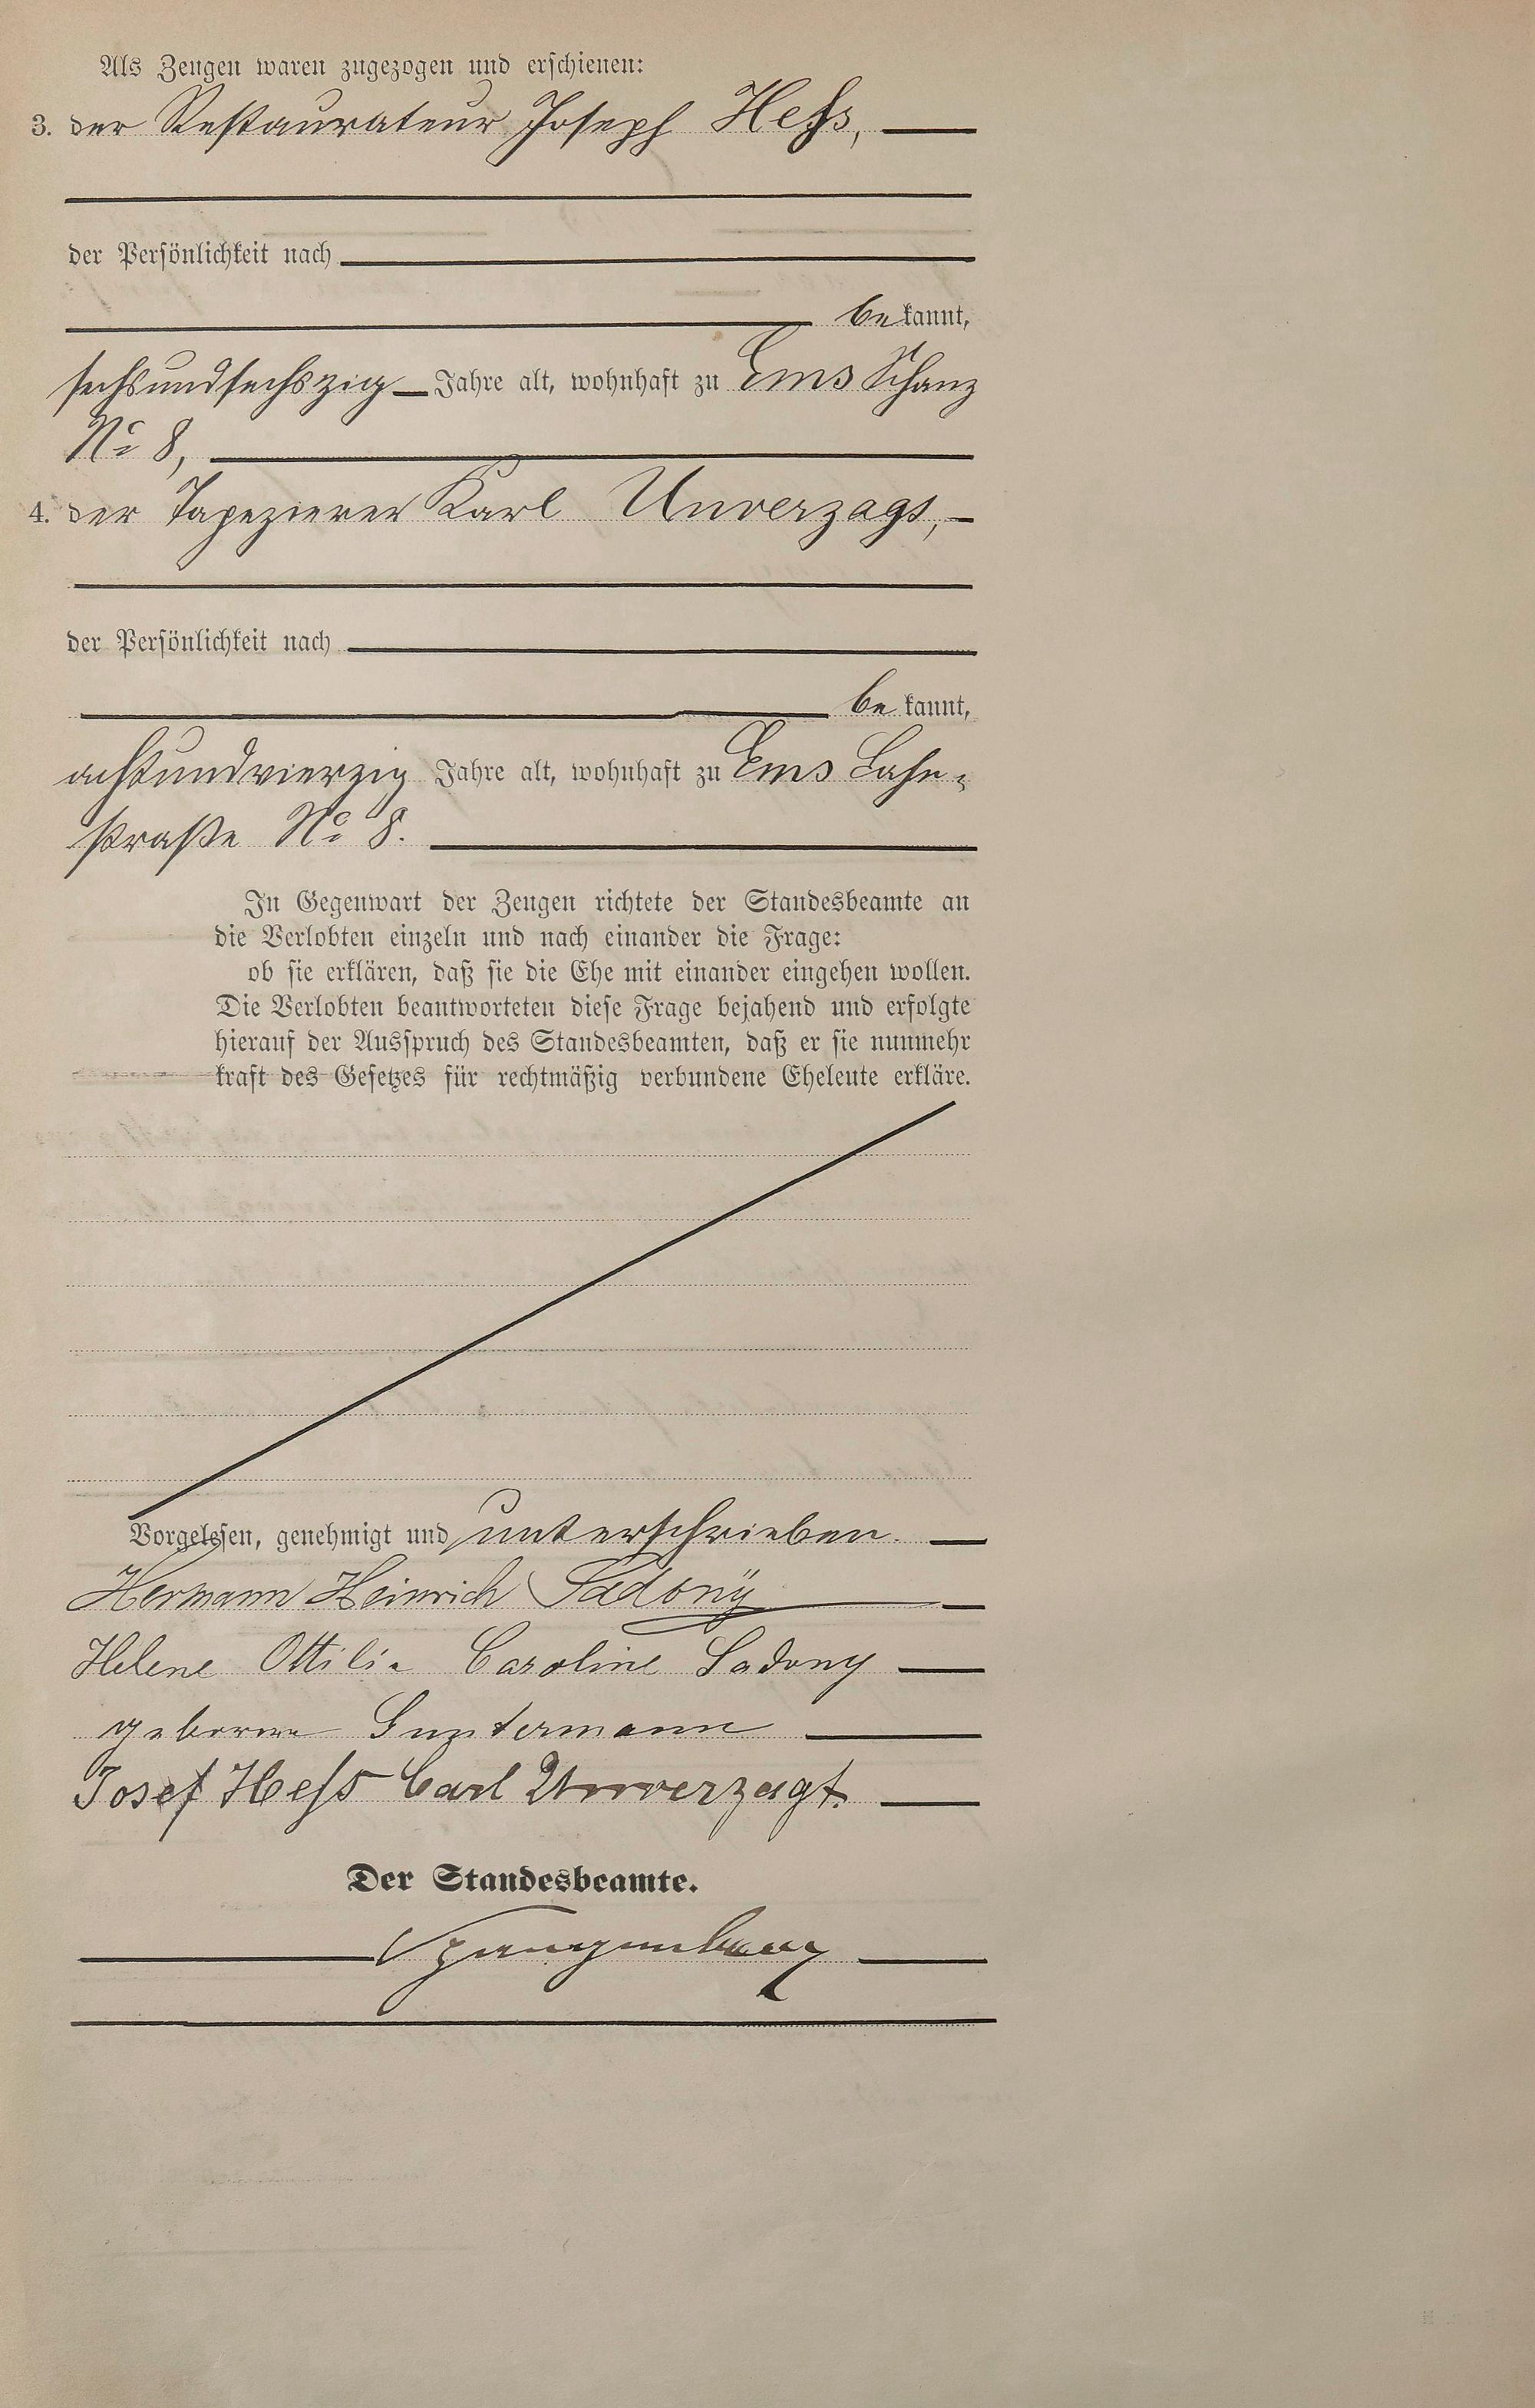 Als Zeugen waren zugezogen und erschienen:
3. der Restaurateur Joseph Heſs,
der Persönlichkeit nach
bekannt,
sechsundsechszig Jahre alt, wohnhaft zu Ems Schanz
No 8,
4. der Tapezierer Karl Unverzagt,
der Persönlichkeit nach
bekannt,
achtundvierzig Jahre alt, wohnhaft zu Ems Lahn-
straße No 8.
In Gegenwart der Zeugen richtete der Standesbeamte an
die Verlobten einzeln und nach einander die Frage:
ob sie erklären, daß sie die Ehe mit einander eingehen wollen.
Die Verlobten beantworteten diese Frage bejahend und erfolgte
hierauf der Ausspruch des Standesbeamten, daß er sie nunmehr
kraft des Gesetzes für rechtmäßig verbundene Eheleute erkläre.
Vorgelesen, genehmigt und unterschrieben.
Hermann Heinrich Sadonÿ
Helene Ottilie Caroline Sadony
geborene Guntermann
Josef Heſs Carl Unverzagt.
Der Standesbeamte.
Spangenberg